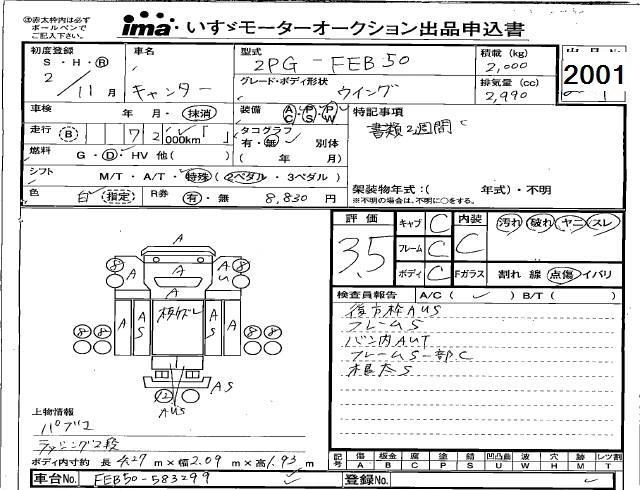 ㊟赤太枠内は必ず
ボールペンで
ご記入下さい。
ima いすゞモーターオークション出品申込書
初度登録
S・H・Ⓡ
2 / 11月
車名
キャンター
型式
2PG-FEB50
グレード・ボディ形状
ウイング
積載 (kg)
2,000
排気量 (cc)
2,990
2001
車検 年・月・抹消
装備 AC PS PW
特記事項
書類2週間
走行 B 72 000km
タコグラフ
有・無 別体
( 年 月)
燃料 G・D・HV 他( )
シフト M/T・A/T・特殊 (2ペダル・3ペダル)
架装物年式:( 年式)・不明
※不明の場合は、不明に○をする。
色 白 (指定) R券 有・無 8,830 円
評価
3.5
キャブ C
フレーム C
ボディ C
内装
C
Fガラス
汚れ 破れ ヤニ スレ
割れ 線 点傷 イバリ
検査員報告 A/C( ) B/T( )
後方枠AUS
フレームS
バン内AUT
フレームS一部C
根太S
A
8 A AU 8
A
A A S A S A
8 8 8 8
A S
AUS
上物情報
パブコ
ラッシング2段
ボディ内寸約 長 4.27 m×幅 2.09 m×高 1.93 m
記号 傷 板金 腐 塗 錆 凹凸曲 波 穴 跡 レツ割
A B C P S U W H M T
車台No. FEB50-583299
登録No.